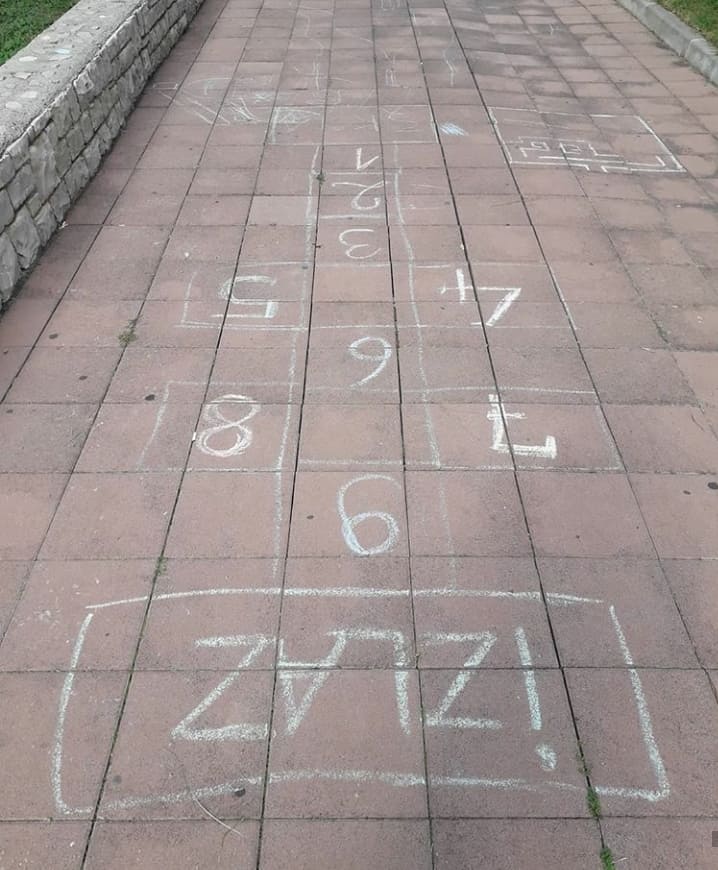 iZLAZ
9
7 8
6
4 5
3
2
1